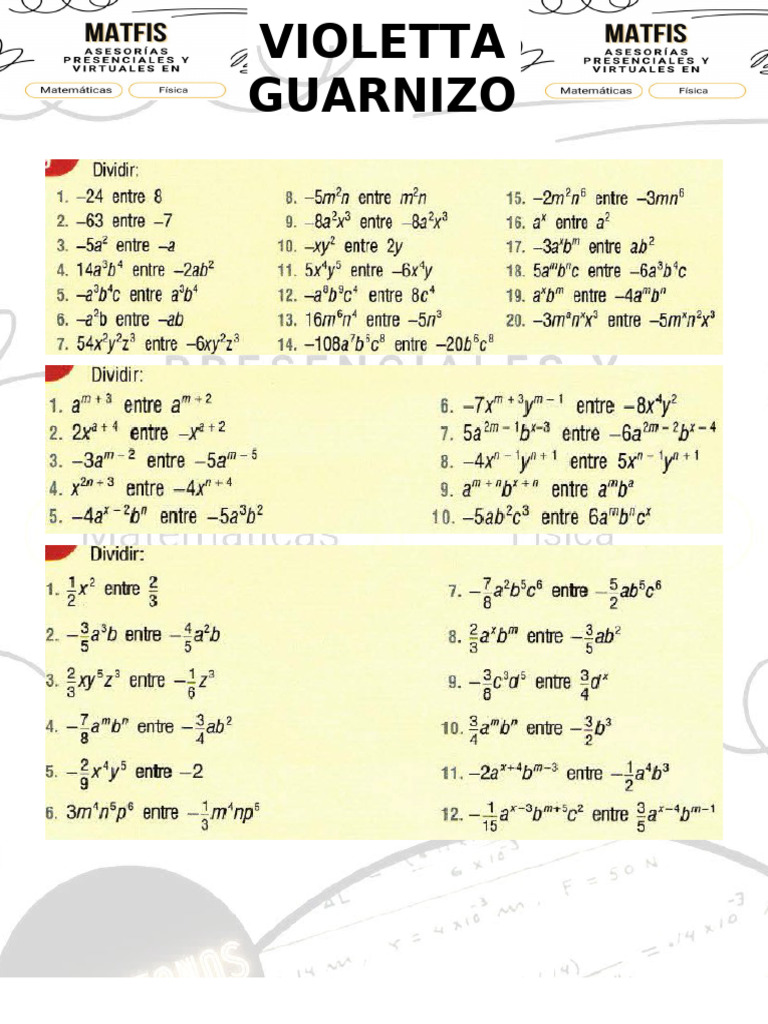 MATFIS
ASESORÍAS
PRESENCIALES Y
VIRTUALES EN
Matemáticas Física
VIOLETTA
GUARNIZO
MATFIS
ASESORÍAS
PRESENCIALES Y
VIRTUALES EN
Matemáticas Física
Dividir:
1. –24 entre 8
2. –63 entre –7
3. –5a² entre –a
4. 14a³b⁴ entre –2ab²
5. –a³b⁴c entre a³b⁴
6. –a²b entre –ab
7. 54x²y²z³ entre –6xy²z³
8. –5m²n entre m²n
9. –8a²x³ entre –8a²x³
10. –xy² entre 2y
11. 5x⁴y⁵ entre –6x⁴y
12. –a⁸b⁹c⁴ entre 8c⁴
13. 16m⁶n⁴ entre –5n³
14. –108a⁷b⁵c⁸ entre –20b⁶c⁸
15. –2m²n⁶ entre –3mn⁶
16. aˣ entre a²
17. –3aˣbᵐ entre ab²
18. 5aᵐbⁿc entre –6a³b⁴c
19. aˣbᵐ entre –4aᵐbⁿ
20. –3mᵃnˣx³ entre –5mˣn²x³
PRESENCIALES Y
Dividir:
1. aᵐ⁺³ entre aᵐ⁺²
2. 2xᵃ⁺⁴ entre –xᵃ⁺²
3. –3aᵐ⁻² entre –5aᵐ⁻⁵
4. x²ⁿ⁺³ entre –4xⁿ⁺⁴
5. –4aˣ⁻²bⁿ entre –5a³b²
6. –7xᵐ⁺³yᵐ⁻¹ entre –8x⁴y²
7. 5a²ᵐ⁻¹bˣ⁻³ entre –6a²ᵐ⁻²bˣ⁻⁴
8. –4xⁿ⁻¹yⁿ⁺¹ entre 5xⁿ⁻¹yⁿ⁺¹
9. aᵐ⁺ⁿbˣ⁺ⁿ entre aᵐbᵃ
10. –5ab²c³ entre 6aᵐbⁿcˣ
Matemáticas Física
Dividir:
1. 1/2 x² entre 2/3
2. –3/5 a³b entre –4/5 a²b
3. 2/3 xy⁵z³ entre –1/6 z³
4. –7/8 aᵐbⁿ entre –3/4 ab²
5. –2/9 x⁴y⁵ entre –2
6. 3m⁴n⁵p⁶ entre –1/3 m⁴np⁵
7. –7/8 a²b⁵c⁶ entre –5/2 ab⁵c⁶
8. 2/3 aˣbᵐ entre –3/5 ab²
9. –3/8 c³d⁵ entre 3/4 dˣ
10. 3/4 aᵐbⁿ entre –3/2 b³
11. –2aˣ⁺⁴bᵐ⁻³ entre –1/2 a⁴b³
12. –1/15 aˣ⁻³bᵐ⁺⁵c² entre 3/5 aˣ⁻⁴bᵐ⁻¹
ΔL
6 x 10⁻³
F = 50 N
r = 4x10⁻³ m,
= .14 x10⁻³
14 m